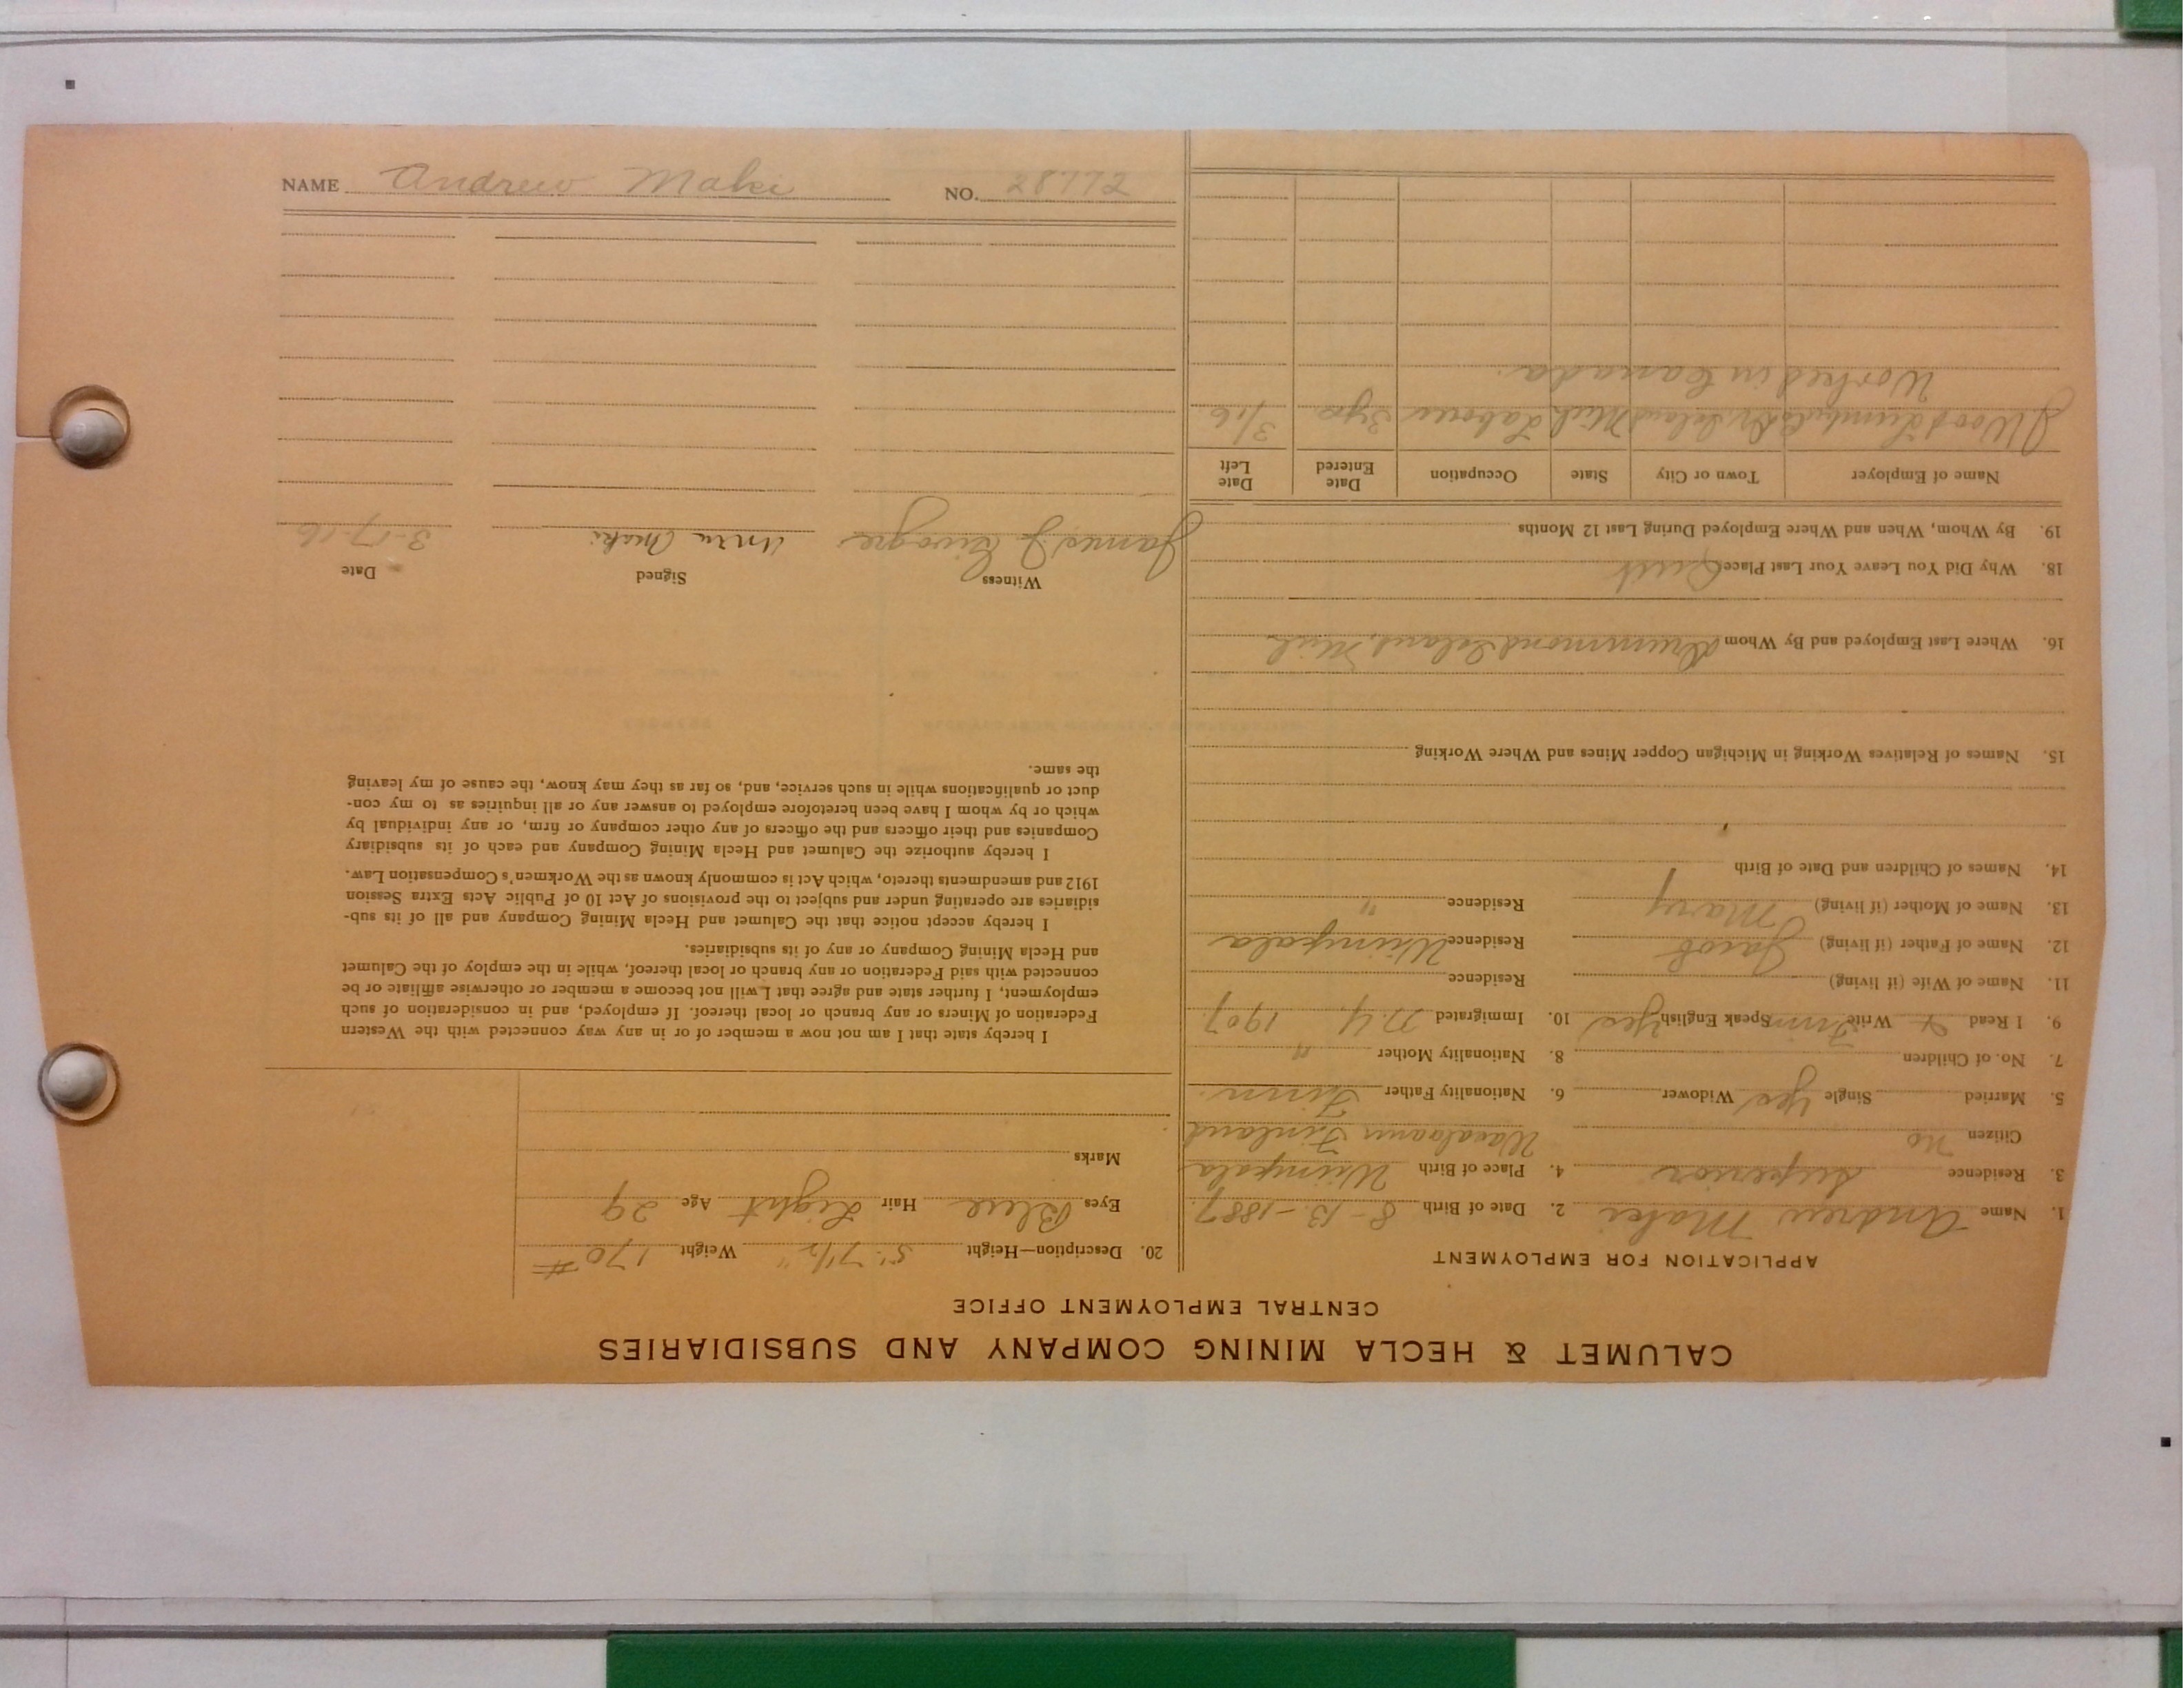 CALUMET & HECLA MINING COMPANY AND SUBSIDIARIES
CENTRAL EMPLOYMENT OFFICE
APPLICATION FOR EMPLOYMENT
1. Name Andrew Maki 2. Date of Birth 8-13-1887
3. Residence Superior 4. Place of Birth
Citizen no Finland
5. Married Single yes Widower 6. Nationality Father Finn
7. No. of Children 8. Nationality Mother "
9. I Read & Write Finn Speak English Yes 10. Immigrated N.Y. 1907
11. Name of Wife (if living) Residence
12. Name of Father (if living) Jacob Residence
13. Name of Mother (if living) Mary Residence "
14. Names of Children and Date of Birth
15. Names of Relatives Working in Michigan Copper Mines and Where Working
16. Where Last Employed and By Whom Drummond Island, Mich
18. Why Did You Leave Your Last Place Quit
19. By Whom, When and Where Employed During Last 12 Months
Name of Employer Town or City State Occupation Date Entered Date Left
Wood Mich Laborer 3 yrs 3/16
Worked in Canada.
20. Description—Height 5' 7 1/2" Weight 170 #
Eyes Blue Hair Light Age 29
Marks
I hereby state that I am not now a member of or in any way connected with the Western
Federation of Miners or any branch or local thereof. If employed, and in consideration of such
employment, I further state and agree that I will not become a member or otherwise affiliate or be
connected with said Federation or any branch or local thereof, while in the employ of the Calumet
and Hecla Mining Company or any of its subsidiaries.
I hereby accept notice that the Calumet and Hecla Mining Company and all of its sub-
sidiaries are operating under and subject to the provisions of Act 10 of Public Acts Extra Session
1912 and amendments thereto, which Act is commonly known as the Workmen's Compensation Law.
I hereby authorize the Calumet and Hecla Mining Company and each of its subsidiary
Companies and their officers and the officers of any other company or firm, or any individual by
which or by whom I have been heretofore employed to answer any or all inquiries as to my con-
duct or qualifications while in such service, and, so far as they may know, the cause of my leaving
the same.
Witness Signed Date
James J Maki 3-17-16
NAME Andrew Maki NO. 28772